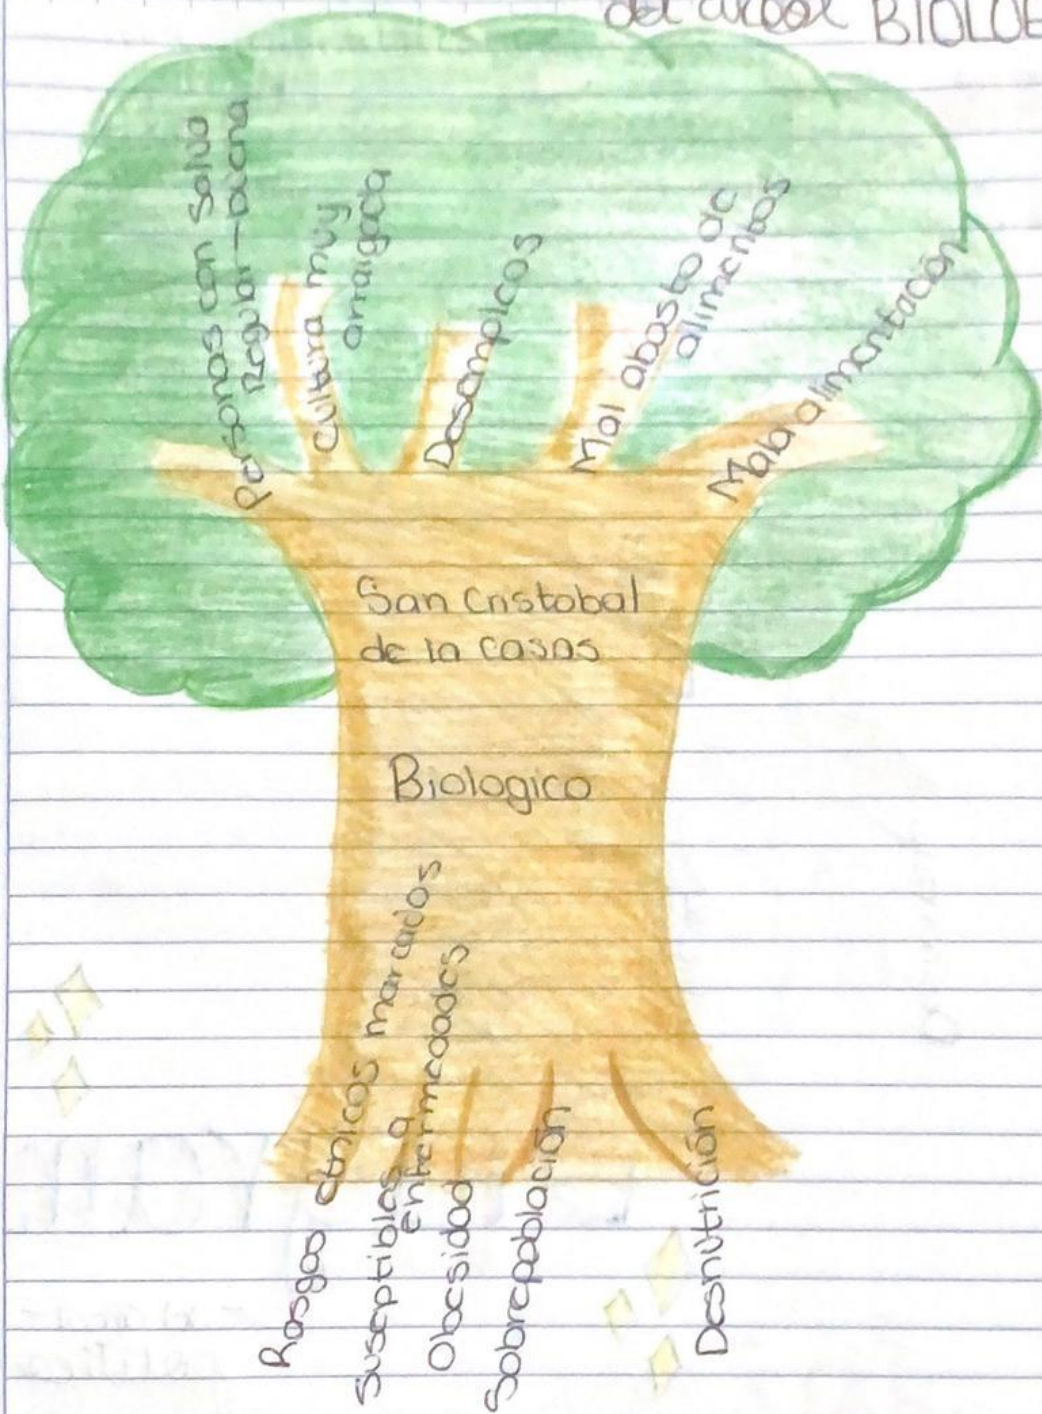 del arbol BIOLOE
Personas con Salud
Regular-buena
Cultura muy
arraigada
Desempleos
Mal abasto de
alimentos
Mala alimentación
San Cristobal
de la casas
Biologico
Rasgos etnicos marcados
Suseptibles a
enfermedades
Obesidad
Sobrepoblación
Desnutrición